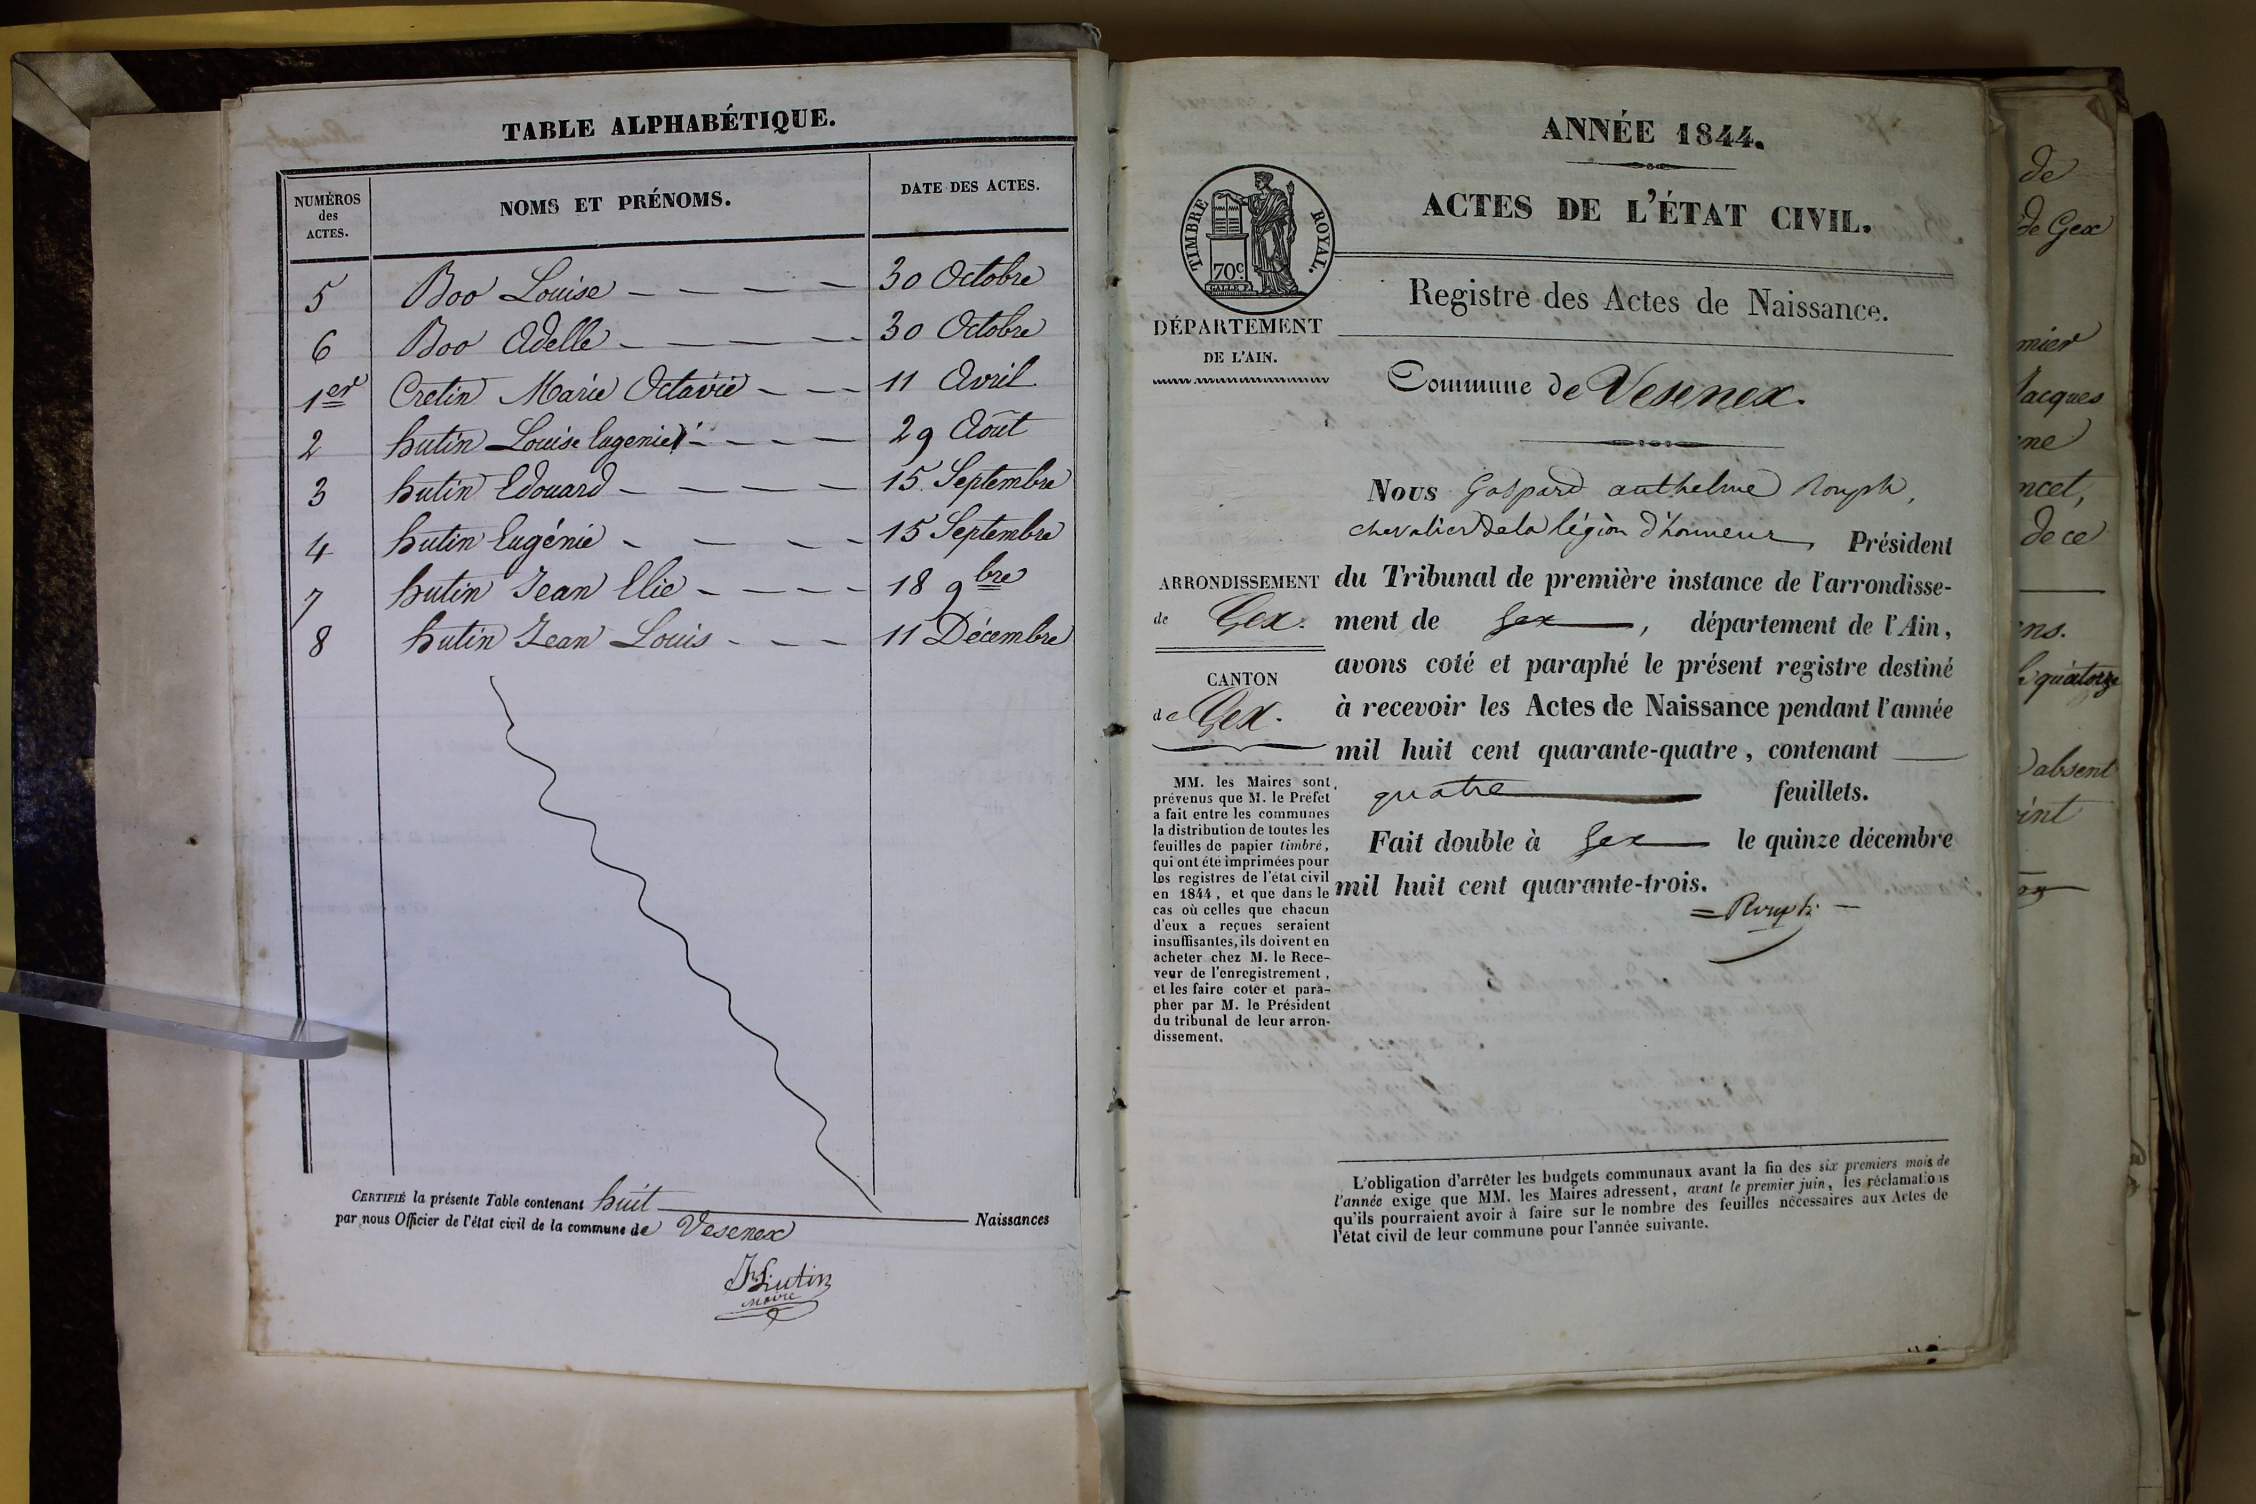 TABLE ALPHABÉTIQUE.
NUMÉROS des ACTES. NOMS ET PRÉNOMS. DATE DES ACTES.
5 Boo Louise 30 Octobre
6 Boo Adelle 30 Octobre
1er Cretin Marie Octavie 11 Avril
2 hutin Louise Eugenie 29 Août
3 hutin Edouard 15 Septembre
4 hutin Eugénie 15 Septembre
7 hutin Jean Elie 18 9bre
8 hutin Jean Louis 11 Décembre
CERTIFIÉ la présente Table contenant huit Naissances
par nous Officier de l'état civil de la commune de Vesenex
Hutin
Maire
ANNÉE 1844.
ACTES DE L'ÉTAT CIVIL.
TIMBRE ROYAL.
70c
Registre des Actes de Naissance.
DÉPARTEMENT
DE L'AIN.
Commune de Vesenex.
ARRONDISSEMENT
de Gex.
CANTON
de Gex.
MM. les Maires sont
prévenus que M. le Préfet
a fait entre les communes
la distribution de toutes les
feuilles de papier timbré,
qui ont été imprimées pour
les registres de l'état civil
en 1844, et que dans le
cas où celles que chacun
d'eux a reçues seraient
insuffisantes, ils doivent en
acheter chez M. le Rece-
veur de l'enregistrement,
et les faire coter et para-
pher par M. le Président
du tribunal de leur arron-
dissement.
Nous Gaspard anthelme Rouph,
chevalier de la légion d'honneur, Président
du Tribunal de première instance de l'arrondisse-
ment de Gex, département de l'Ain,
avons coté et paraphé le présent registre destiné
à recevoir les Actes de Naissance pendant l'année
mil huit cent quarante-quatre, contenant
quatre feuillets.
Fait double à Gex le quinze décembre
mil huit cent quarante-trois.
Rouph
L'obligation d'arrêter les budgets communaux avant la fin des six premiers mois de
l'année exige que MM. les Maires adressent, avant le premier juin, les réclamations
qu'ils pourraient avoir à faire sur le nombre des feuilles nécessaires aux Actes de
l'état civil de leur commune pour l'année suivante.
de
de Gex
mier
Jacques
ne
ncet,
de ce
ns.
quatorze
absent